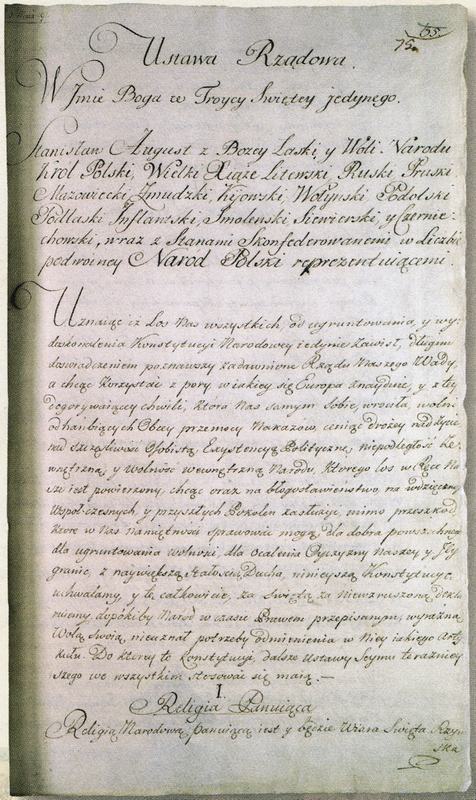 75.
65
Ustawa Rządowa.
W Jmie Boga w Troycy Swiętey jedynego.
Stanisław August z Bozey Łaski, y Woli Narodu
Krol Polski, Wielki Xiąże Litewski, Ruski Pruski
Mazowiecki, Zmudzki, Kijowski, Wołynski Podolski
Podlaski Jnflantski, Smolenski Siewierski, y Czernie-
chowski, wraz z Stanami Skonfederowanemi w Liczbie
podwoiney Narod Polski reprezentuiącemi
Uznaiąc iż Los Nas wszystkich, od ugruntowania, y wy-
doskonalenia Konstytucyi Narodowey iedynie zawisł, długim
doswiadczeniem poznawszy zadawnione Rządu Naszego Wady,
a chcąc korzystać z pory w iakiey się Europa znayduie, y z tey
dogorywaiącey chwili, ktora Nas samym Sobie, wrociła, wolni
od hańbiących Obcey przemocy Nakazow, ceniąc drożey nad życie
nad szczęsliwość Osobistą, Exystencyą Polityczną, niepodległość Ze-
wnętrzną, y Wolność wewnętrzną Narodu, ktorego los w Ręce Na-
sze iest powierzony, chcąc oraz na błogosławieństwo, na wdzięczność
Wspołczesnych, y przyszłych Pokoleń zasłużyć, mimo przeszkod,
ktore w Nas namiętności sprawować mogą, dla dobra powszechnego
dla ugruntowania wolności, dla Ocalenia Oyczyzny Naszey y Jey
granic, z naywiększą stałością Ducha, ninieyszą Konstytucyę
uchwalamy, y tę całkowicie, za Swiętą, za Niewzruszoną dekla-
ruiemy, dopokiby Narod w czasie Prawem przepisanym, wyrazną
Wolą Swoią, nieuznał potrzeby odmienienia w Niey iakiego Arty-
kułu. Do ktorey to Konstytucyi, dalsze Ustawy Seymu teraznie-
szego we wszystkim stosować się maią. —
I.
Religia Panuiąca
Religią Narodową panuiącą iest y będzie Wiara Swięta Rzym-
ska